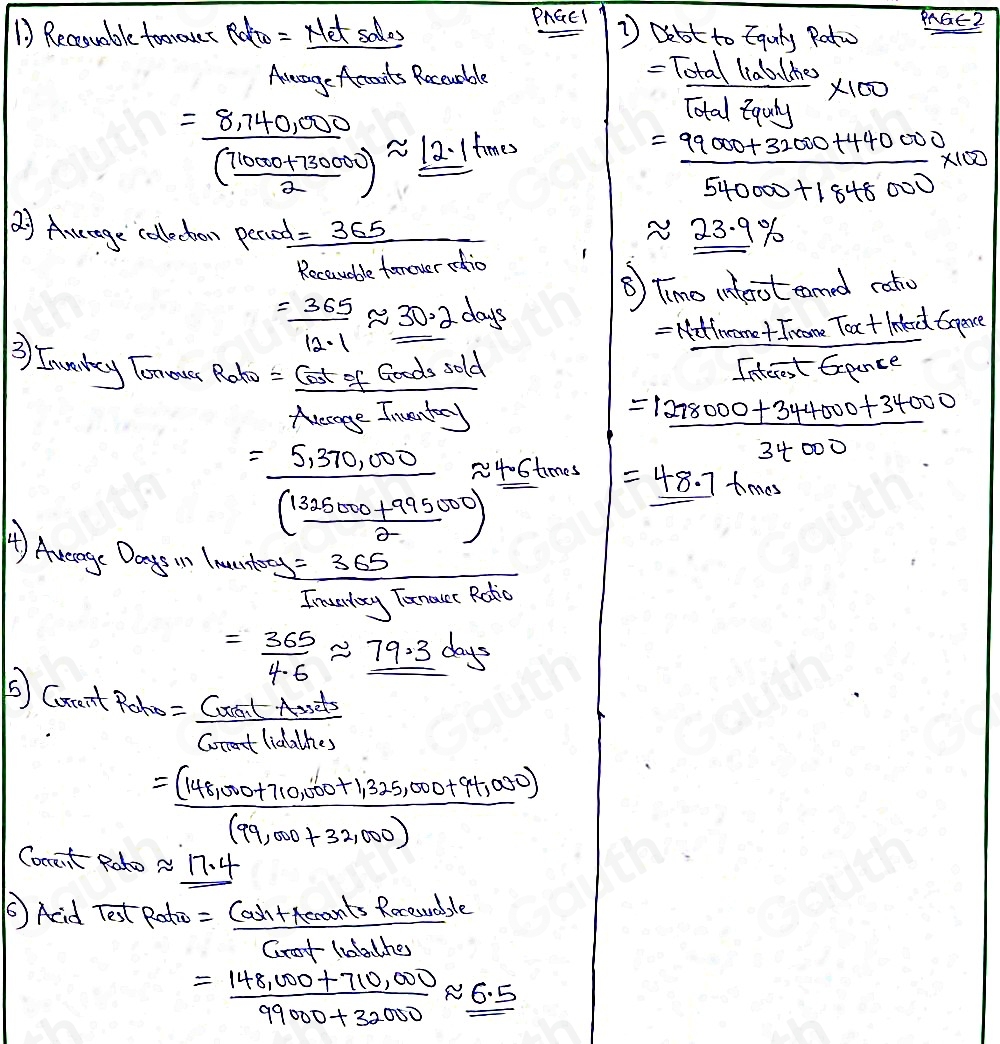 PAGE1
1.) Receivable turnover Ratio = Net sales
Average Accounts Receivable
= 8,740,000
(710000+730000) ≈ 12.1 times
2
2.) Average collection period = 365
Receivable turnover ratio
= 365 ≈ 30.2 days
12.1
3) Inventory Turnover Ratio = Cost of Goods sold
Average Inventory
= 5,370,000 ≈ 4.6 times
(1325000+995000)
2
4) Average Days in Inventory = 365
Inventory Turnover Ratio
= 365 ≈ 79.3 days
4.6
5) Current Ratio = Current Assets
Current liabilities
= (148,000+710,000+1,325,000+94,000)
(99,000+32,000)
Current Ratio ≈ 17.4
6) Acid Test Ratio = Cash+Accounts Receivable
Current liabilities
= 148,000+710,000 ≈ 6.5
99000+32000
PAGE2
7) Debt to Equity Ratio
= Total liabilities X100
Total Equity
= 99000+32000+440 000 X100
540000+1848 000
≈ 23.9%
8) Time interest earned ratio
= Net Income+Income Tax+Interest Expence
Interest Expence
= 1278000+344000+34000
34 000
= 48.7 times
Gauth